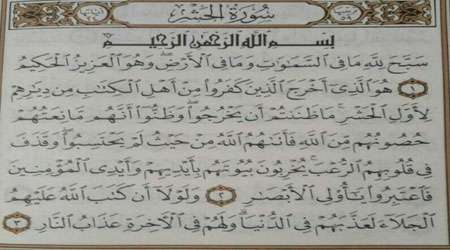 سُورَةُ الحَشْرِ
بِسْمِ اللَّهِ الرَّحْمَٰنِ الرَّحِيمِ
سَبَّحَ لِلَّهِ مَا فِي السَّمَٰوَٰتِ وَمَا فِي الْأَرْضِ ۖ وَهُوَ الْعَزِيزُ الْحَكِيمُ
١ هُوَ الَّذِي أَخْرَجَ الَّذِينَ كَفَرُوا مِنْ أَهْلِ الْكِتَٰبِ مِن دِيَٰرِهِمْ
لِأَوَّلِ الْحَشْرِ ۚ مَا ظَنَنتُمْ أَن يَخْرُجُوا ۖ وَظَنُّوا أَنَّهُم مَّانِعَتُهُمْ
حُصُونُهُم مِّنَ اللَّهِ فَأَتَىٰهُمُ اللَّهُ مِنْ حَيْثُ لَمْ يَحْتَسِبُوا ۖ وَقَذَفَ
فِي قُلُوبِهِمُ الرُّعْبَ ۚ يُخْرِبُونَ بُيُوتَهُم بِأَيْدِيهِمْ وَأَيْدِي الْمُؤْمِنِينَ
فَاعْتَبِرُوا يَٰٓأُولِي الْأَبْصَٰرِ ٢ وَلَوْلَا أَن كَتَبَ اللَّهُ عَلَيْهِمُ
الْجَلَاءَ لَعَذَّبَهُمْ فِي الدُّنْيَا ۖ وَلَهُمْ فِي الْآخِرَةِ عَذَابُ النَّارِ ٣